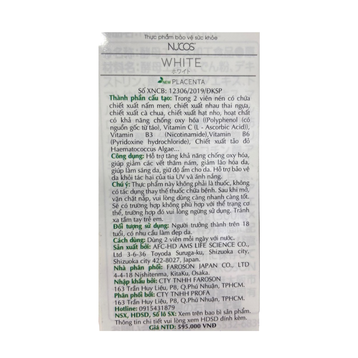 Thực phẩm bảo vệ sức khỏe
NUCOS
WHITE
ホワイト
NEW PLACENTA
Số XNCB: 12306/2019/ĐKSP
Thành phần cấu tạo: Trong 2 viên nén có chứa
chiết xuất nấm men, chiết xuất nhau thai ngựa,
chiết xuất cà chua, chiết xuất hạt nho, hoạt chất
có khả năng chống oxy hóa ((Polyphenol (có
nguồn gốc từ táo), Vitamin C (L - Ascorbic Acid),
Vitamin B3 (Nicotinamide),Vitamin B6
(Pyridoxine hydrochloride), Chiết xuất tảo đỏ
Haematococcus Algae...
Công dụng: Hỗ trợ tăng khả năng chống oxy hóa,
giúp giảm các vết thâm nám, giảm lão hóa da,
giúp làm sáng da, giữ độ ẩm cho da. Hỗ trợ bảo vệ
da khỏi tác hại của tia UV và ánh nắng.
Chú ý: Thực phẩm này không phải là thuốc, không
có tác dụng thay thế thuốc chữa bệnh. Sau khi mở,
vặn chặt nắp, vui lòng dùng càng nhanh càng tốt.
Sẽ có trường hợp không phù hợp với thể trạng cơ
thể, trường hợp đó vui lòng ngừng sử dụng. Tránh
xa tầm tay trẻ em.
Đối tượng sử dụng: Người trưởng thành trên 18
tuổi, có nhu cầu làm đẹp da.
Cách dùng: Dùng 2 viên mỗi ngày với nước.
Sản xuất bởi: AFC-HD AMS LIFE SCIENCE CO.,
Ltd 3-6-36 Toyoda Suruga-ku, Shizuoka city,
Shizuoka 422-8027, Japan.
Nhà phân phối: FAROSON JAPAN CO., LTD
4-4-18 Nishitenma, KitaKu, Osaka.
Nhập khẩu bởi: CTY TNHH FAROSON
163 Trần Huy Liệu, P8, Q.Phú Nhuận, TPHCM.
Phân phối bởi: CTY TNHH PROFA
163 Trần Huy Liệu, P8, Q.Phú Nhuận, TPHCM.
Hotline: 0915431879
NSX, HDSD, Số lô SX: Xem trên bao bì sản phẩm.
Thông tin chi tiết vui lòng xem HDSD đính kèm.
Giá NTD: 595.000 VNĐ